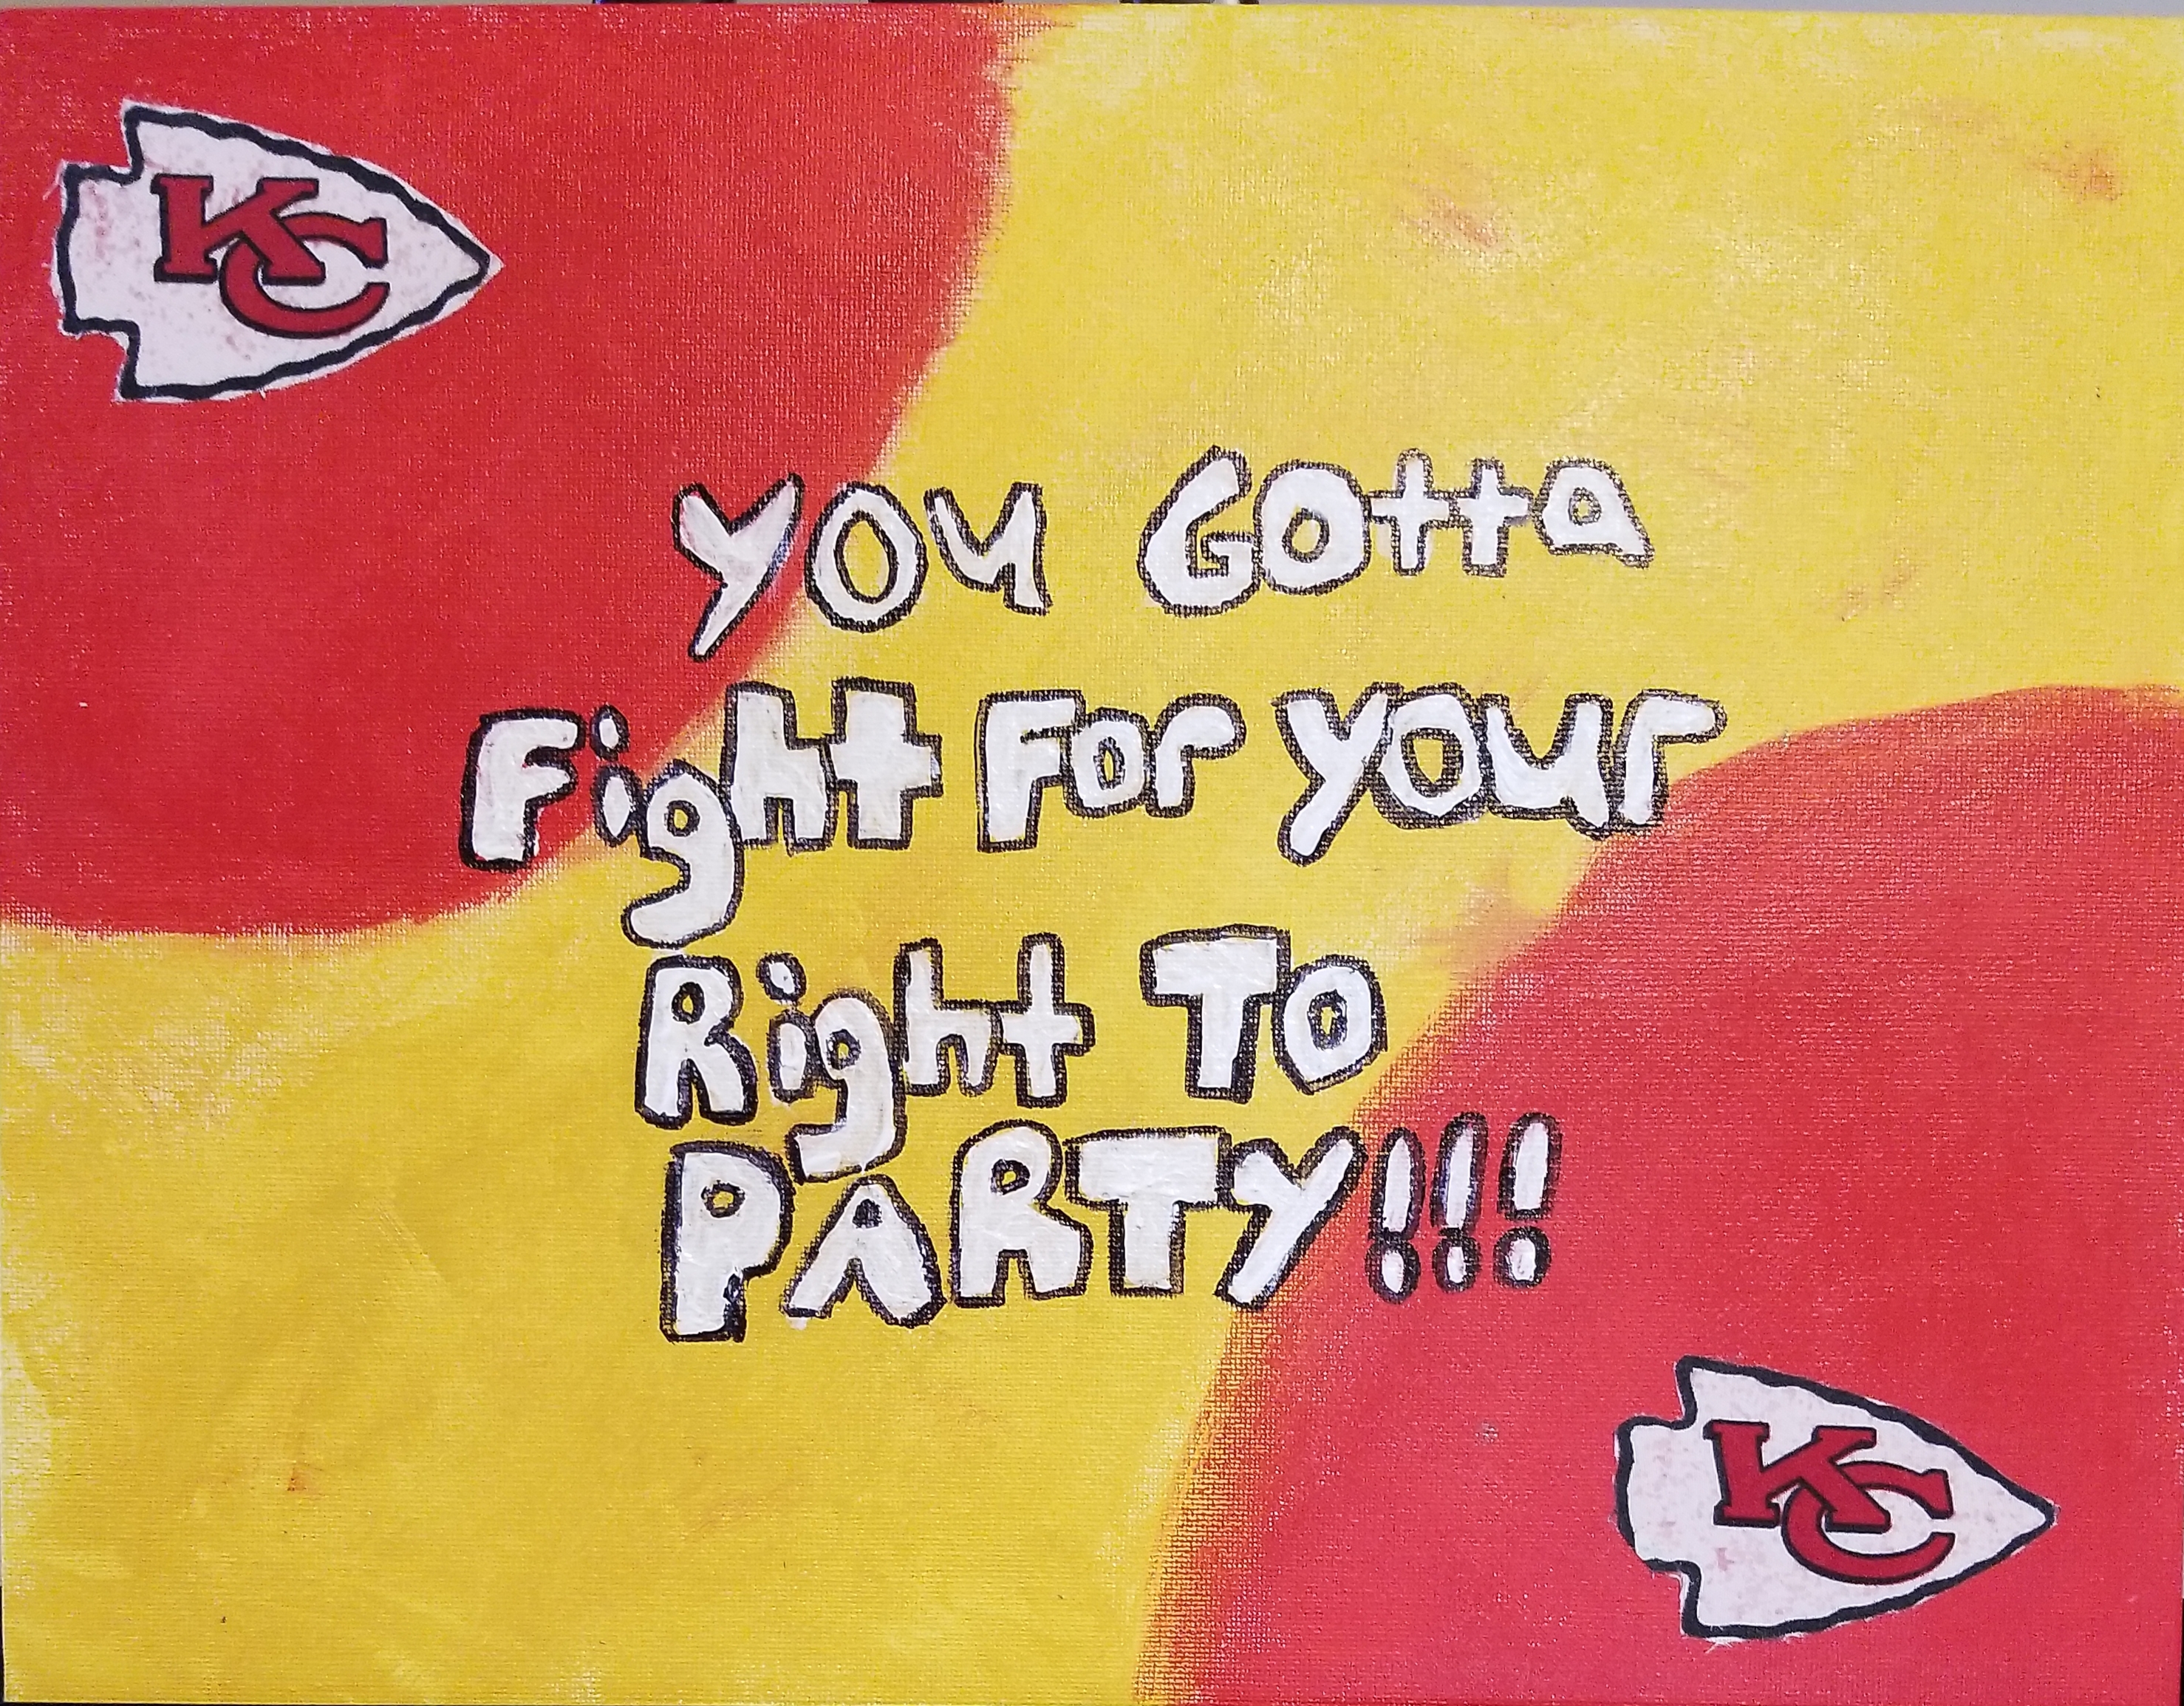 KC
You Gotta
Fight For Your
Right To
PARTY!!!
KC